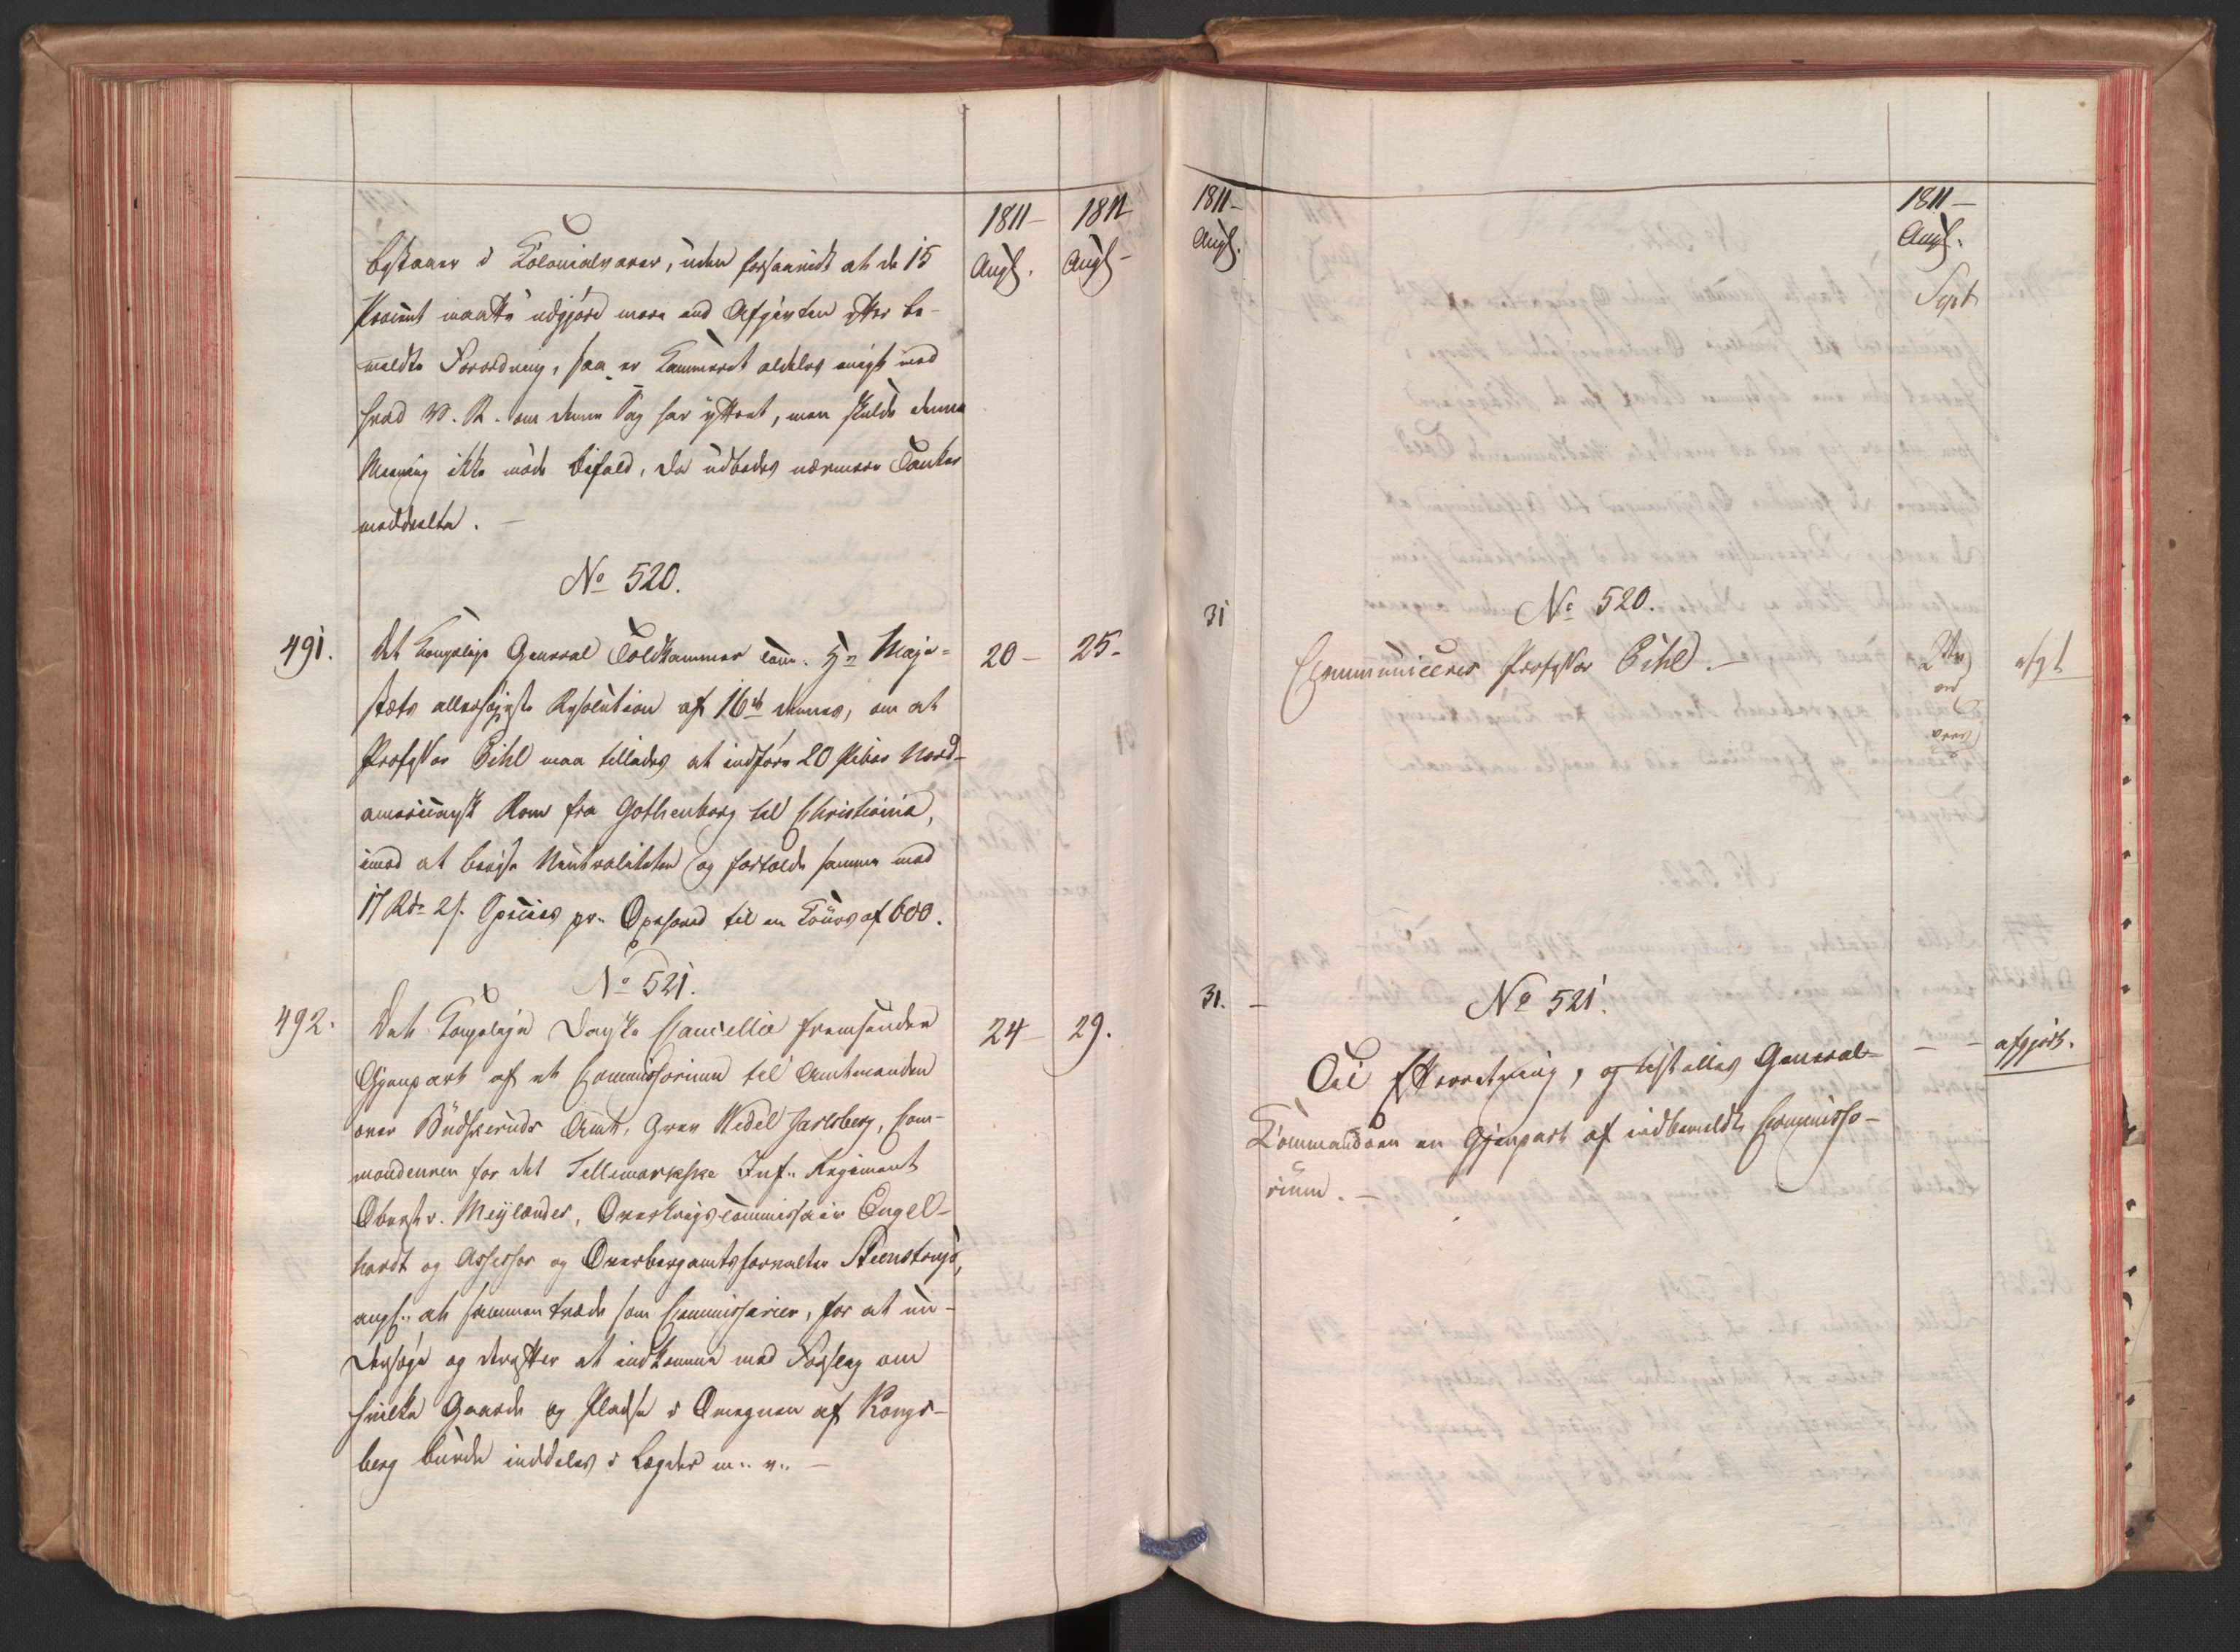 1811-
Augs.
1811
Augs-
bestaaer i Kolonialvarer, uden forsaavidt at de 15
Procent maatte udgjøre mere end Afgivten efter be-
meldte Forordning, saa er Kammeret aldeles enigt med
hvad V. R. om denne Sag har yttret, men skulde denne
Meening ikke møde bifald, da udbedes nærmere Tanker
meddeelte. -
No 520.
491.
Det kongelige General Toldkammer com. Hs Maje-
20-
25.
stæts allerhøieste Resolution af 16de dennes, om at
Professor Pihl maa tillades at indføre 20 Piber Nord-
americansk Rom fra Gothenborg til Christiania,
imod at beviise Neutraliteten og fortolde samme med
17 Rdr 2 s. Species pr. Oxehoved til en Cours af 600.
No 521.
492.
Det Kongelige Danske Cancellie fremsender
24-
29.
Gjenpart af et Commissorium til Amtmanden
over Budskeruds Amt, Grev Wedel Jarlsberg, Com-
mandeuren for det Tellemarkske Inf. Regiment
Oberst v. Meÿlænder, Overkrigscommissair Engel-
hardt og Assessor og Overbergamtsforvalter Steenstrup,
angl. at sammentræde som Commissarier, for at un-
dersøge og derefter at indkomme med Forslag om
hvilke Gaarde og Pladse i Omegnen af Kongs-
berg burde inddeles i Lægder m. v. -
1811-
Augs.
1811-
Augs.
Sept
31
No 520.
Communiceres Professor Pihl. -
afgt
31. -
No 521.
Til Efterretning, og tilstilles General-
- -
afgjort.
Kommandoen en Gjenpart af indbemeldte Commisso-
rium. -